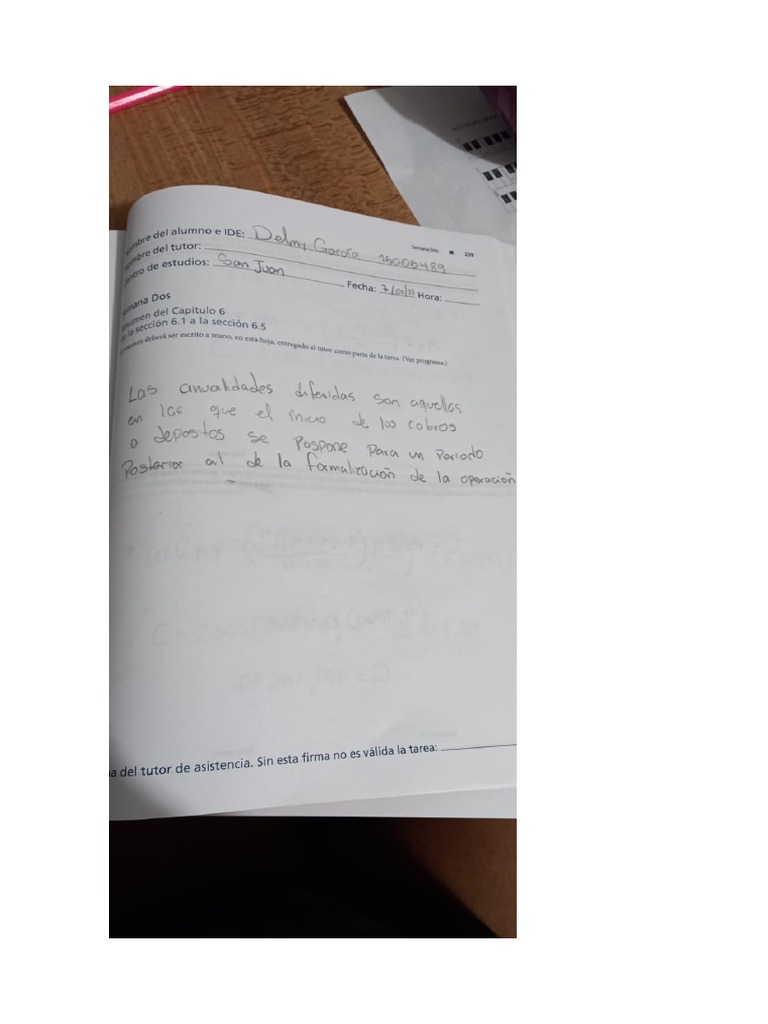 Semana Dos ■ 239
nombre del alumno e IDE: Delmy García 15005489
nombre del tutor:
centro de estudios: San Juan
Fecha: Hora:
Semana Dos
Resumen del Capitulo 6
de la sección 6.1 a la sección 6.5
resumen deberá ser escrito a mano, en esta hoja, entregado al tutor como parte de la tarea. (Ver programa.)
Las anualidades diferidas son aquellas
en las que el inicio de los cobros
o depositos se Pospone Para un Periodo
Posterior al de la formalización de la operación
del tutor de asistencia. Sin esta firma no es válida la tarea: